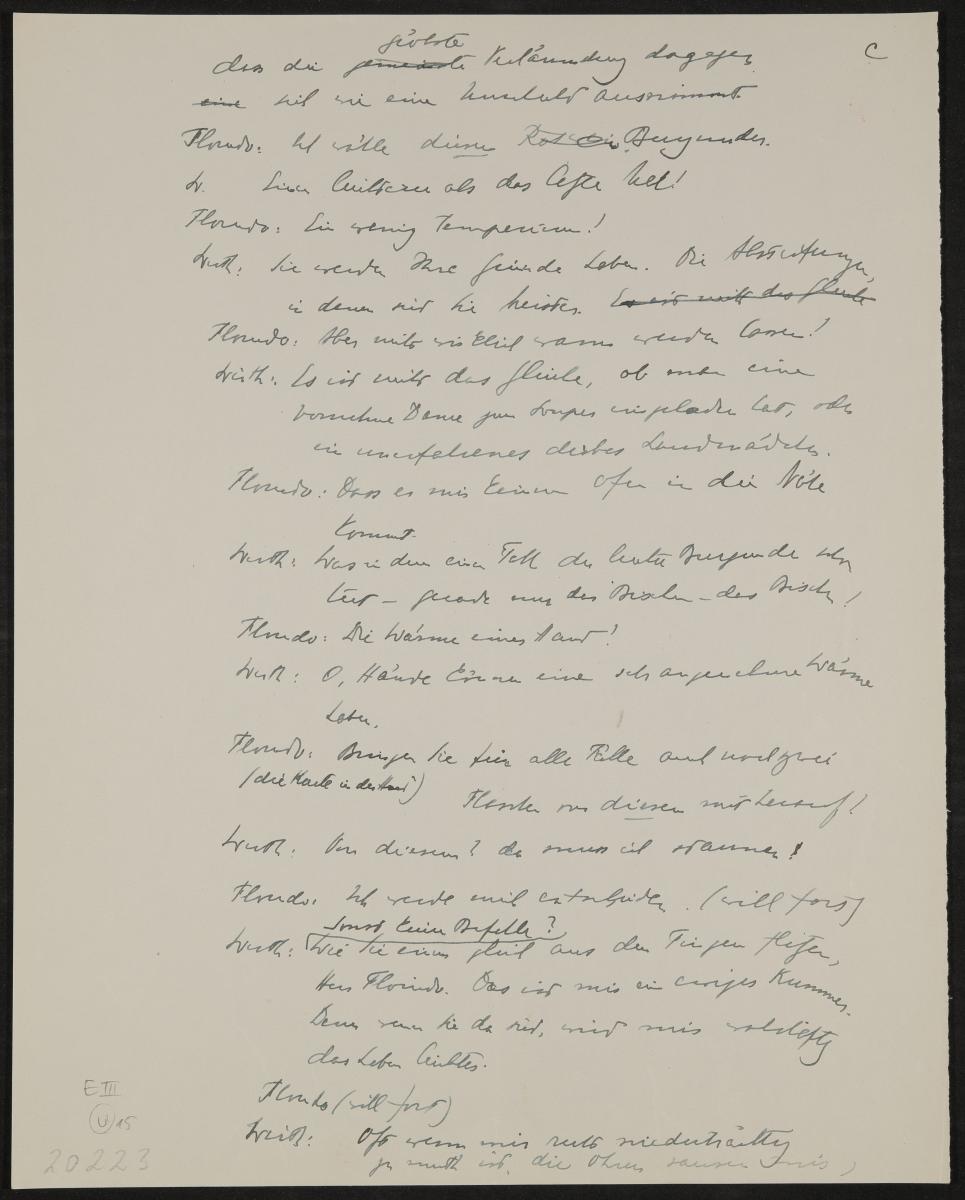 C
gröbste
dass die gemeinste Verläumdung dagegen
eine sich wie eine Unschuld ausnimmt.
Florindo: Ich wähle diesen Rotwein Burgunder.
W. Einen leichteren als das letzte Mal!
Florindo: Ein wenig temperieren!
Wirth: Sie werden Ihre Gründe haben. Die Abstufungen,
in denen sind Sie Meister. Es ist nicht das gleiche
Florindo: Aber nicht wirklich warm werden lassen!
Wirth: Es ist nicht das gleiche, ob man eine
vornehme Dame zum Souper eingeladen hat, oder
ein unerfahrenes derbes Landmädchen.
Florindo: Dass er mir keinem Ofen in die Nähe
kommt.
Wirth: Was in dem einen Fall der leichte Burgunder schon
tut – gerade nur das Bischen – das Bischen!
Florindo: Die Wärme einer Hand!
Wirth: O, Hände können eine sehr angenehme Wärme
haben.
Florindo: Bringen Sie für alle Fälle auch noch zwei
(die Karte in der Hand)
Flaschen von diesem mit herauf!
Wirth: Von diesem? da muss ich staunen!
Florindo: Ich werde mich entscheiden. (will fort)
Sonst keine Befehle?
Wirth: Wie Sie einem gleich aus den Fingern schlüpfen,
Herr Florindo. Das ist mir ein ewiger Kummer.
Denn wenn Sie da sind, wird mir wahrhaftig
das Leben leichter.
Florindo (will fort)
Wirth: Oft wenn mir recht niederträchtig
zu muth ist, die Ohren sausen mir,
E III
U 15
20223